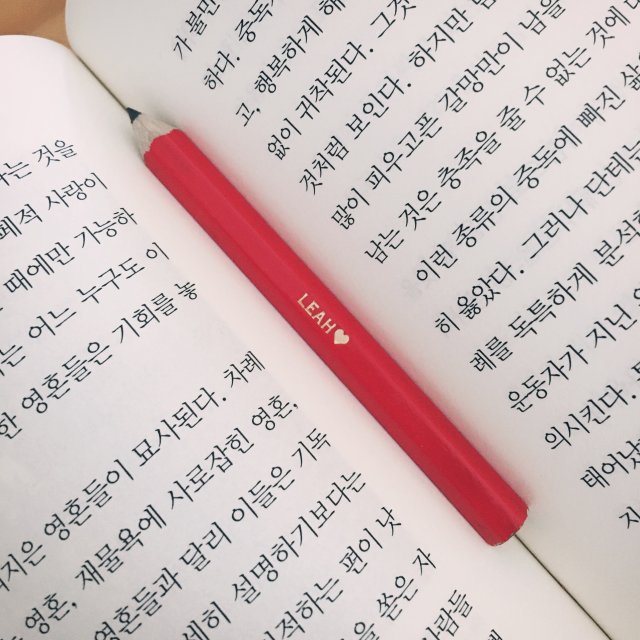 나는 것을
폐적 사랑이
때에만 가능하
는 어느 누구도 이
한 영혼들은 기회를 놓
지은 영혼들이 묘사된다. 차례
영혼, 재물욕에 사로잡힌 영혼,
영혼들과 달리 이들은 기독
세히 설명하기보다는
적하는 편이 낫
을 쏟은 자
사람들
LEAH♥
가 불만
하다. 중독
고, 행복하게 해
없이 귀착된다. 그것
것처럼 보인다. 하지만
많이 피우고픈 갈망만이 남을
남는 것은 충족을 줄 수 없는 것에
이런 종류의 중독에 빠진
히 옳았다. 그러나 단테는
례를 독특하게 분석
운동자가 지닌
의시킨다.
태어났